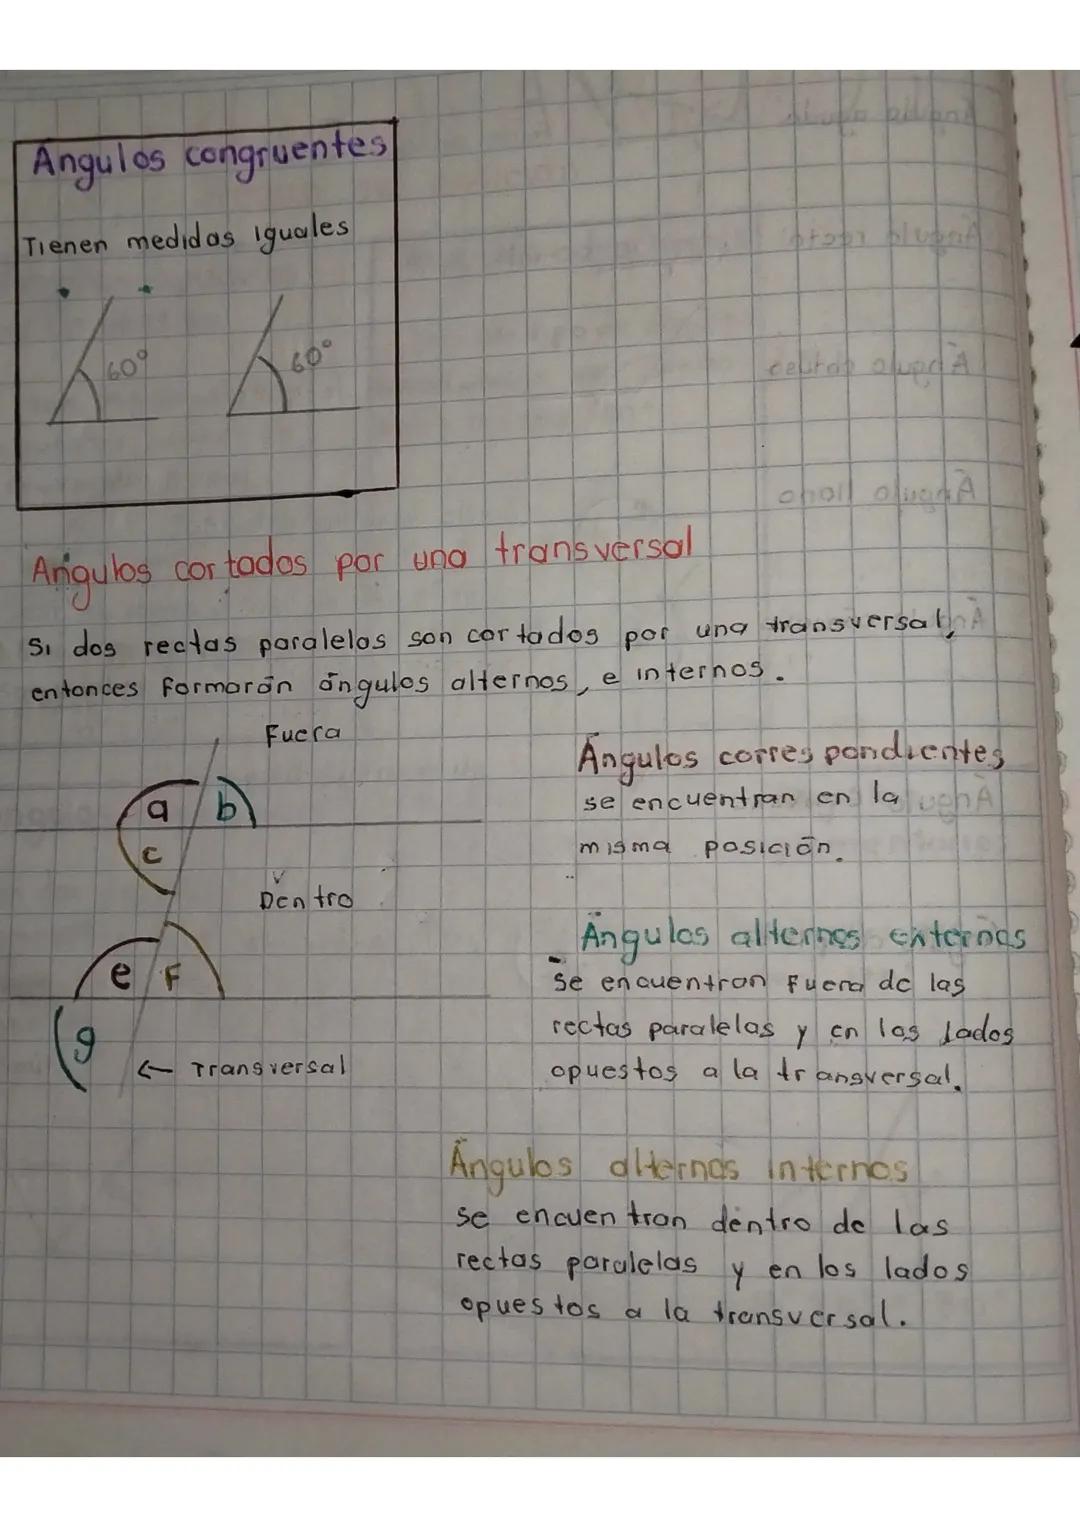 Ángulos congruentes
Tienen medidas iguales
60°
60°
Ángulos cortados por una transversal
Si dos rectas paralelas son cortados por una transversal,
entonces formarán ángulos alternos, e internos.
Fuera
a b
c
Dentro
e F
g
← Transversal
Ángulos correspondientes
se encuentran en la
misma posición.
Ángulos alternos externos
se encuentran Fuera de las
rectas paralelas y en los lados
opuestos a la transversal.
Ángulos alternos internos
se encuentran dentro de las
rectas paralelas y en los lados
opuestos a la transversal.